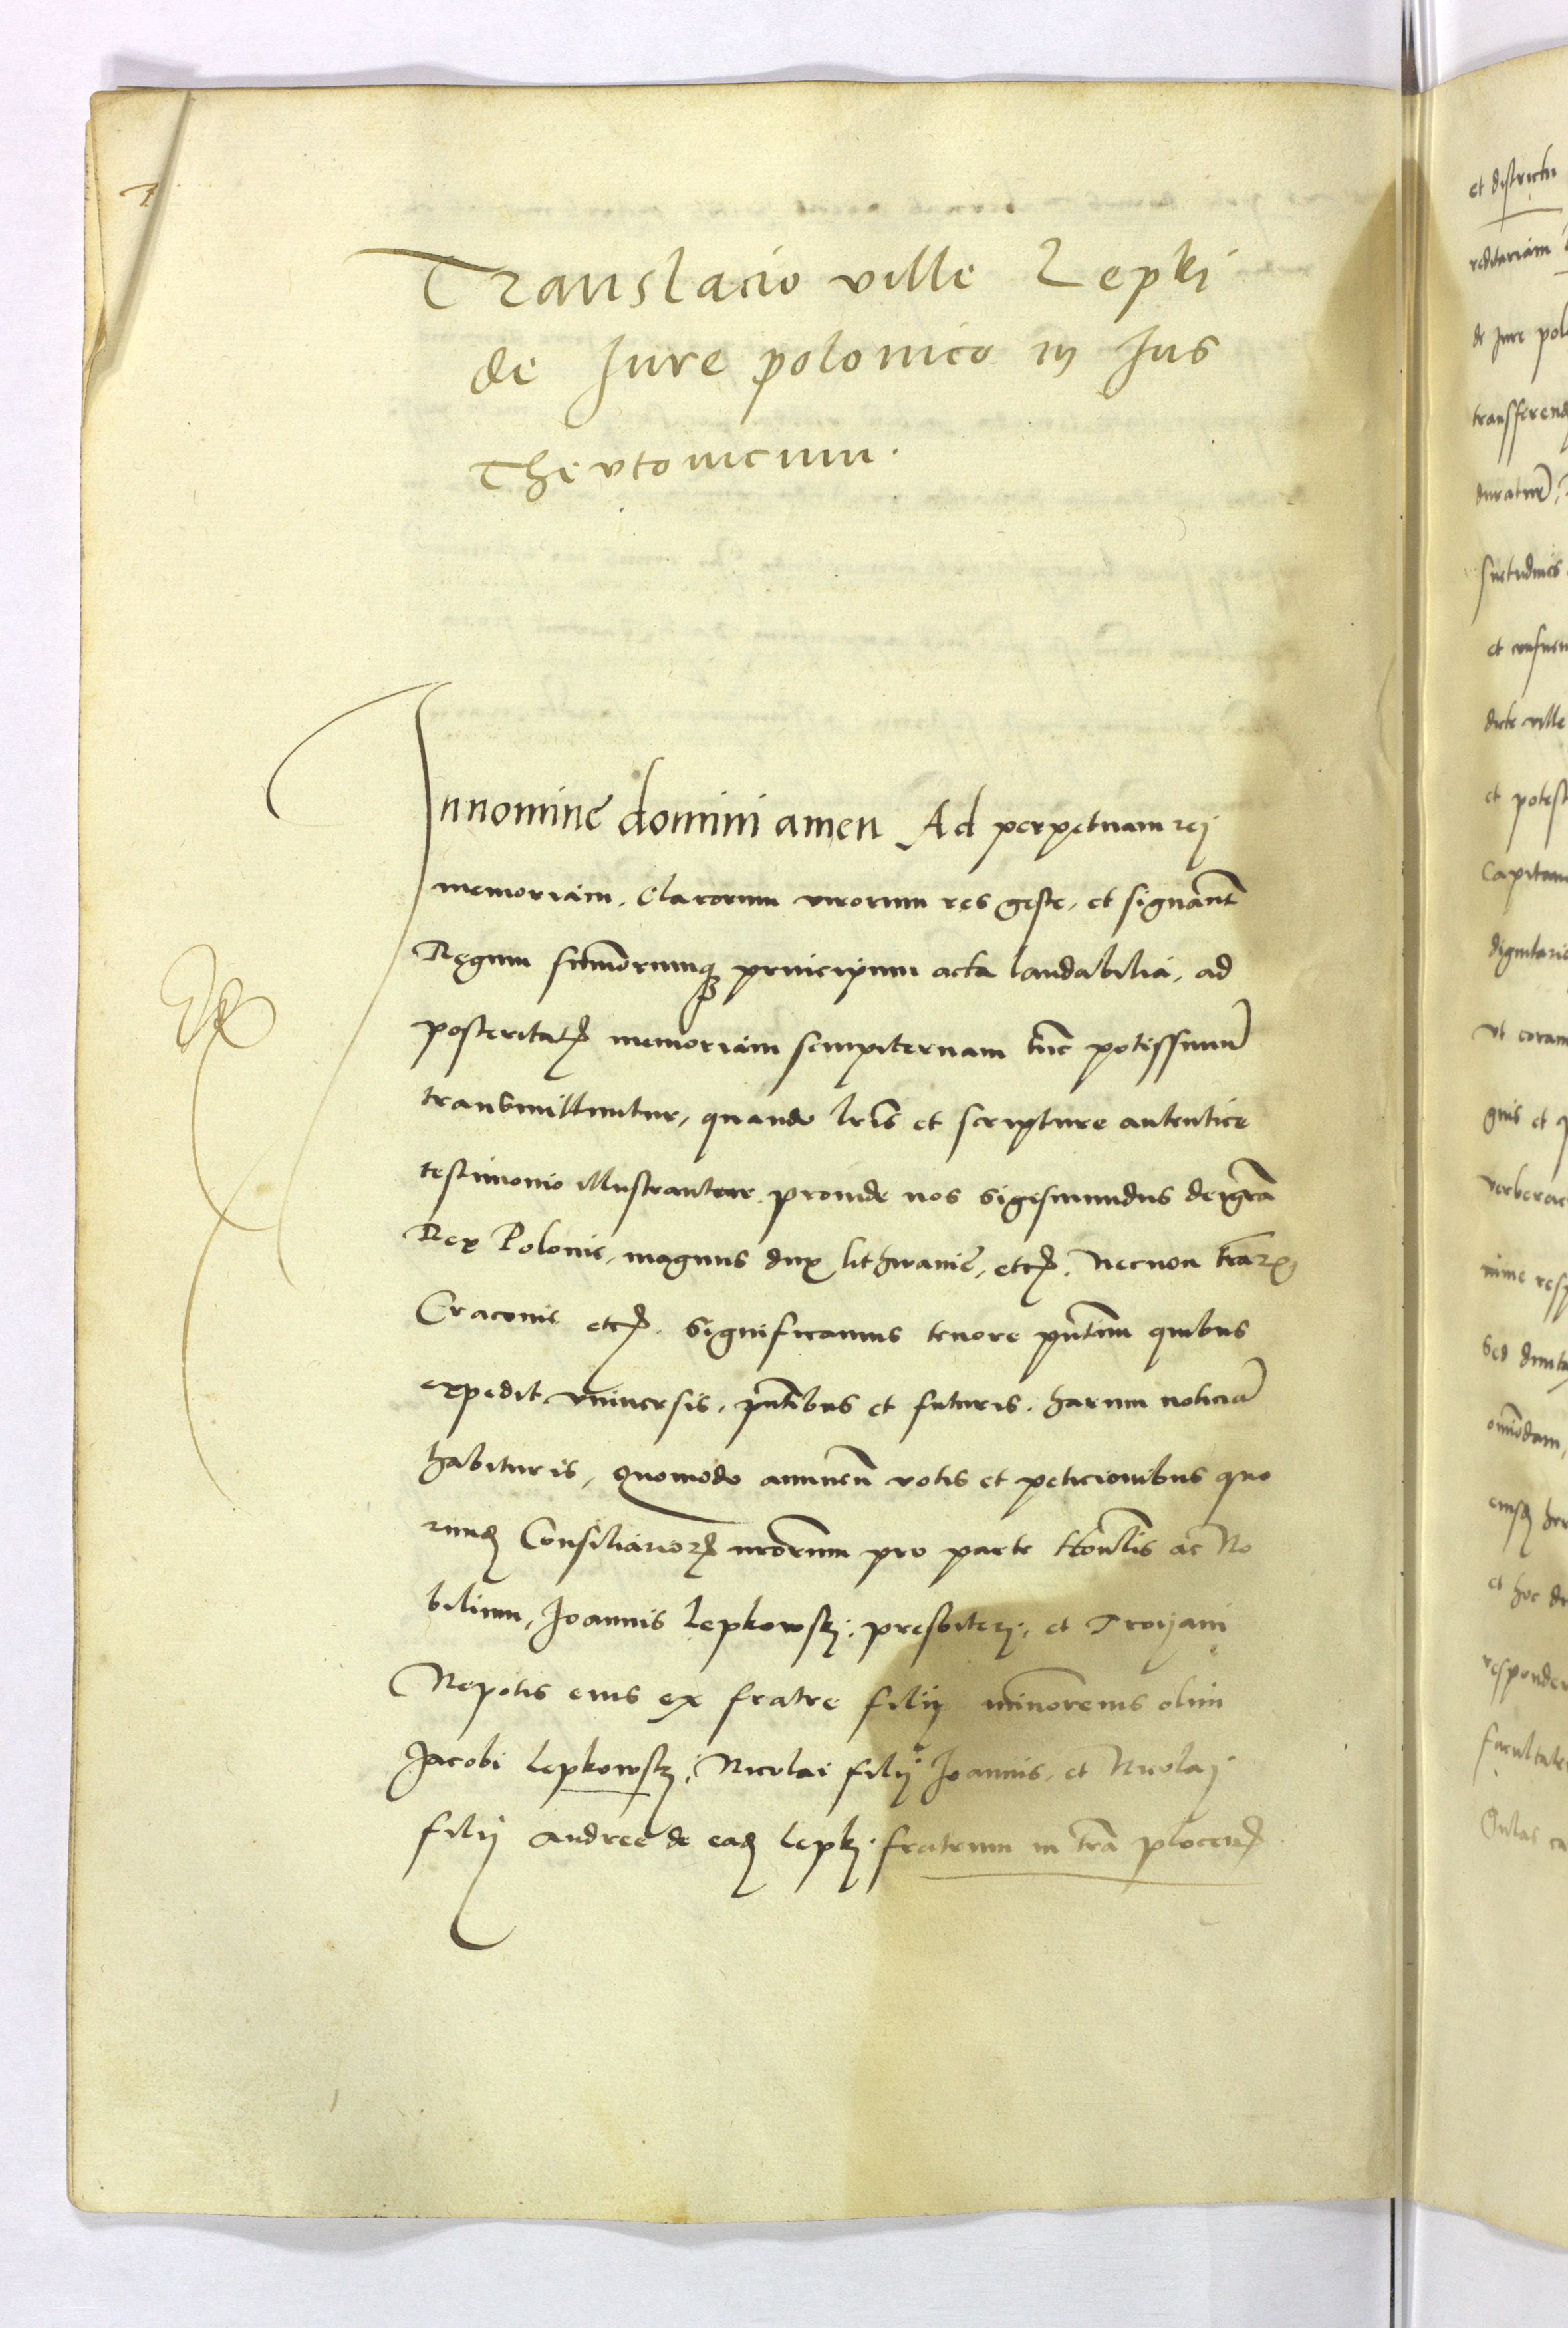 Translacio ville Lepki
de Jure polonico in Jus
Thevtonicum.
In nomine domini amen Ad perpetuam rej
memoriam. Clarorum virorum res geste, et signant
Regum summorumq principum acta laudabilia, ad
posteritatis memoriam sempiternam tunc potissimu
transmittuntur, quando lris et scripture autentice
testimonio illustrantur. proinde nos Sigesmundus dei gra
Rex Polonie, magnus dux lithwanie, etc. Necnon trarum
Cracovie etc. Significamus tenore pntium quibus
expedit vniversis, pntibus et futuris. harum noticia
habituris, Quomodo annuen votis et peticionibus quo
rund Consiliarior nrorum pro parte hon ac No
bilium, Joannis Lepkowskj, presbiterj, et Troijani
Nepotis eius ex fratre filij minorenis olim
Jacobi Lepkowskj, Nicolai filij Joannis, et Nicolaj
filij Andree de eadem Lepkj fratrum in tra plocen
et districtu
reditariam
de Jure pol
transfferend
durature,
suetudines
et consuen
dicte ville
et potest
Capitan
dignitarie
vt coram
gnis et q
verberac
nime resp
Sed dumta
omnodam,
eiusd her
et hoc de
responder
facultate
Qulas ca